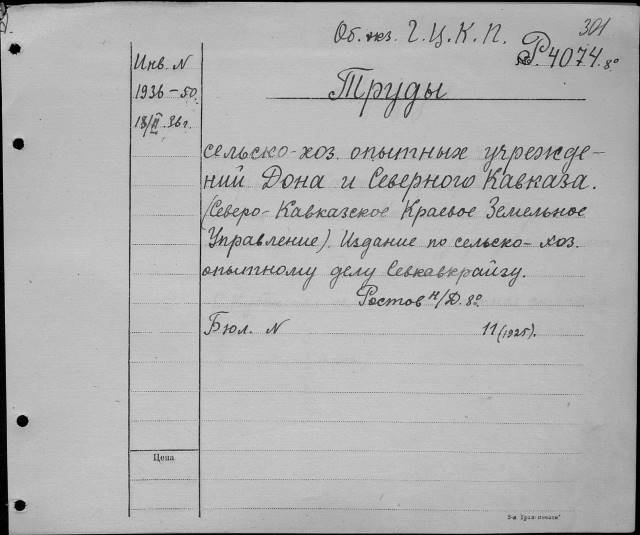 301
Об. экз. Г.Ц.К.П.
Р.4074.8°
Инв. N
1936-50.
18/II.36г.
Труды
сельско-хоз. опытных учрежде-
ний Дона и Северного Кавказа.
(Северо-Кавказское Краевое Земельное
Управление). Издание по сельско-хоз.
опытному делу Севкавкрайзу.
Ростов н/Д. 8°
Бюл. N 11 (1925).
Цена